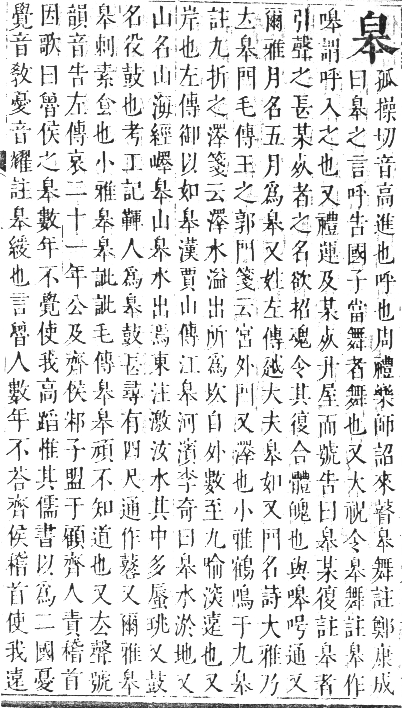 皐孤操切音高進也呼也周禮樂師詔來瞽皐舞註鄭康成
曰皐之言呼告國子當舞者舞也又大祝令皐舞註皐作
嘷謂呼入之也又禮運及某死升屋而號告曰皐某復註皐者
引聲之長某死者之名欲招魂令其復合體魄也與嘷呺通又
爾雅月名五月爲皐又姓左傳越大夫皐如又門名詩大雅乃
立皐門毛傳王之郭門箋云宮外門又澤也小雅鶴鳴于九皐
註九折之澤箋云澤水溢出所爲坎自外數至九喻深遠也又
岸也左傳御以如皐漢賈山傳江皐河濱李奇曰皐水淤地又
山名山海經嶧皐山皐水出焉東注激汝水其中多蜃珧又鼓
名役鼓也考工記韗人爲皐鼓長尋有四尺通作鼛又爾雅皐
皐刺素食也小雅皐皐訿訿毛傳皐皐頑不知道也又去聲號
韻音告左傳哀二十一年公及齊侯邾子盟于顧齊人責稽首
因歌曰魯侯之皐數年不覺使我高蹈惟其儒書以爲二國憂
覺音教憂音耀註皐緩也言魯人數年不荅齊侯稽首使我遠